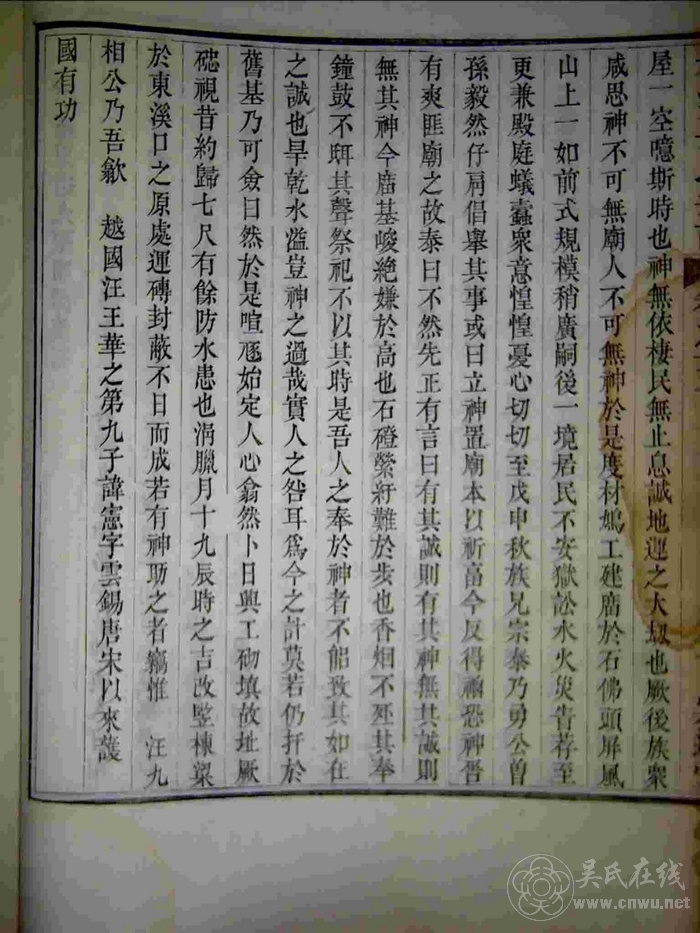 屋一空噫斯時也神無依棲民無止息誠地運之大刼也厥後族衆
咸思神不可無廟人不可無神於是度材鳩工建廟於石佛頭屏風
山上一如前式規模稍廣嗣後一境居民不安獄訟水火災眚荐至
更兼殿庭蟻蠹衆意惶惶憂心切切至戊申秋族兄宗泰乃勇公曾
孫毅然仔肩倡舉其事或曰立神置廟本以祈富今反得禍恐神咎
有爽匪廟之故泰曰不然先正有言曰有其誠則有其神無其誠則
無其神今廟基峻絶嫌於高也石磴縈紆難於步也香烟不
其奉
鐘鼓不
其聲祭祀不以其時是吾人之奉於神者不能致其如在
之誠也旱乾水溢豈神之過哉實人之咎耳爲今之計莫若仍扞於
舊基乃可僉曰然於是喧
始定人心翕然卜日興工砌填故址厥
視昔約歸七尺有餘防水患也涓臘月十九辰時之吉改竪棟梁
於東溪口之原處運磚封蔽不日而成若有神助之者竊惟 汪九
相公乃吾歙 越國汪王華之第九子諱憲字雲錫唐宋以來護
國有功
吴氏在线
www.cnwu.net